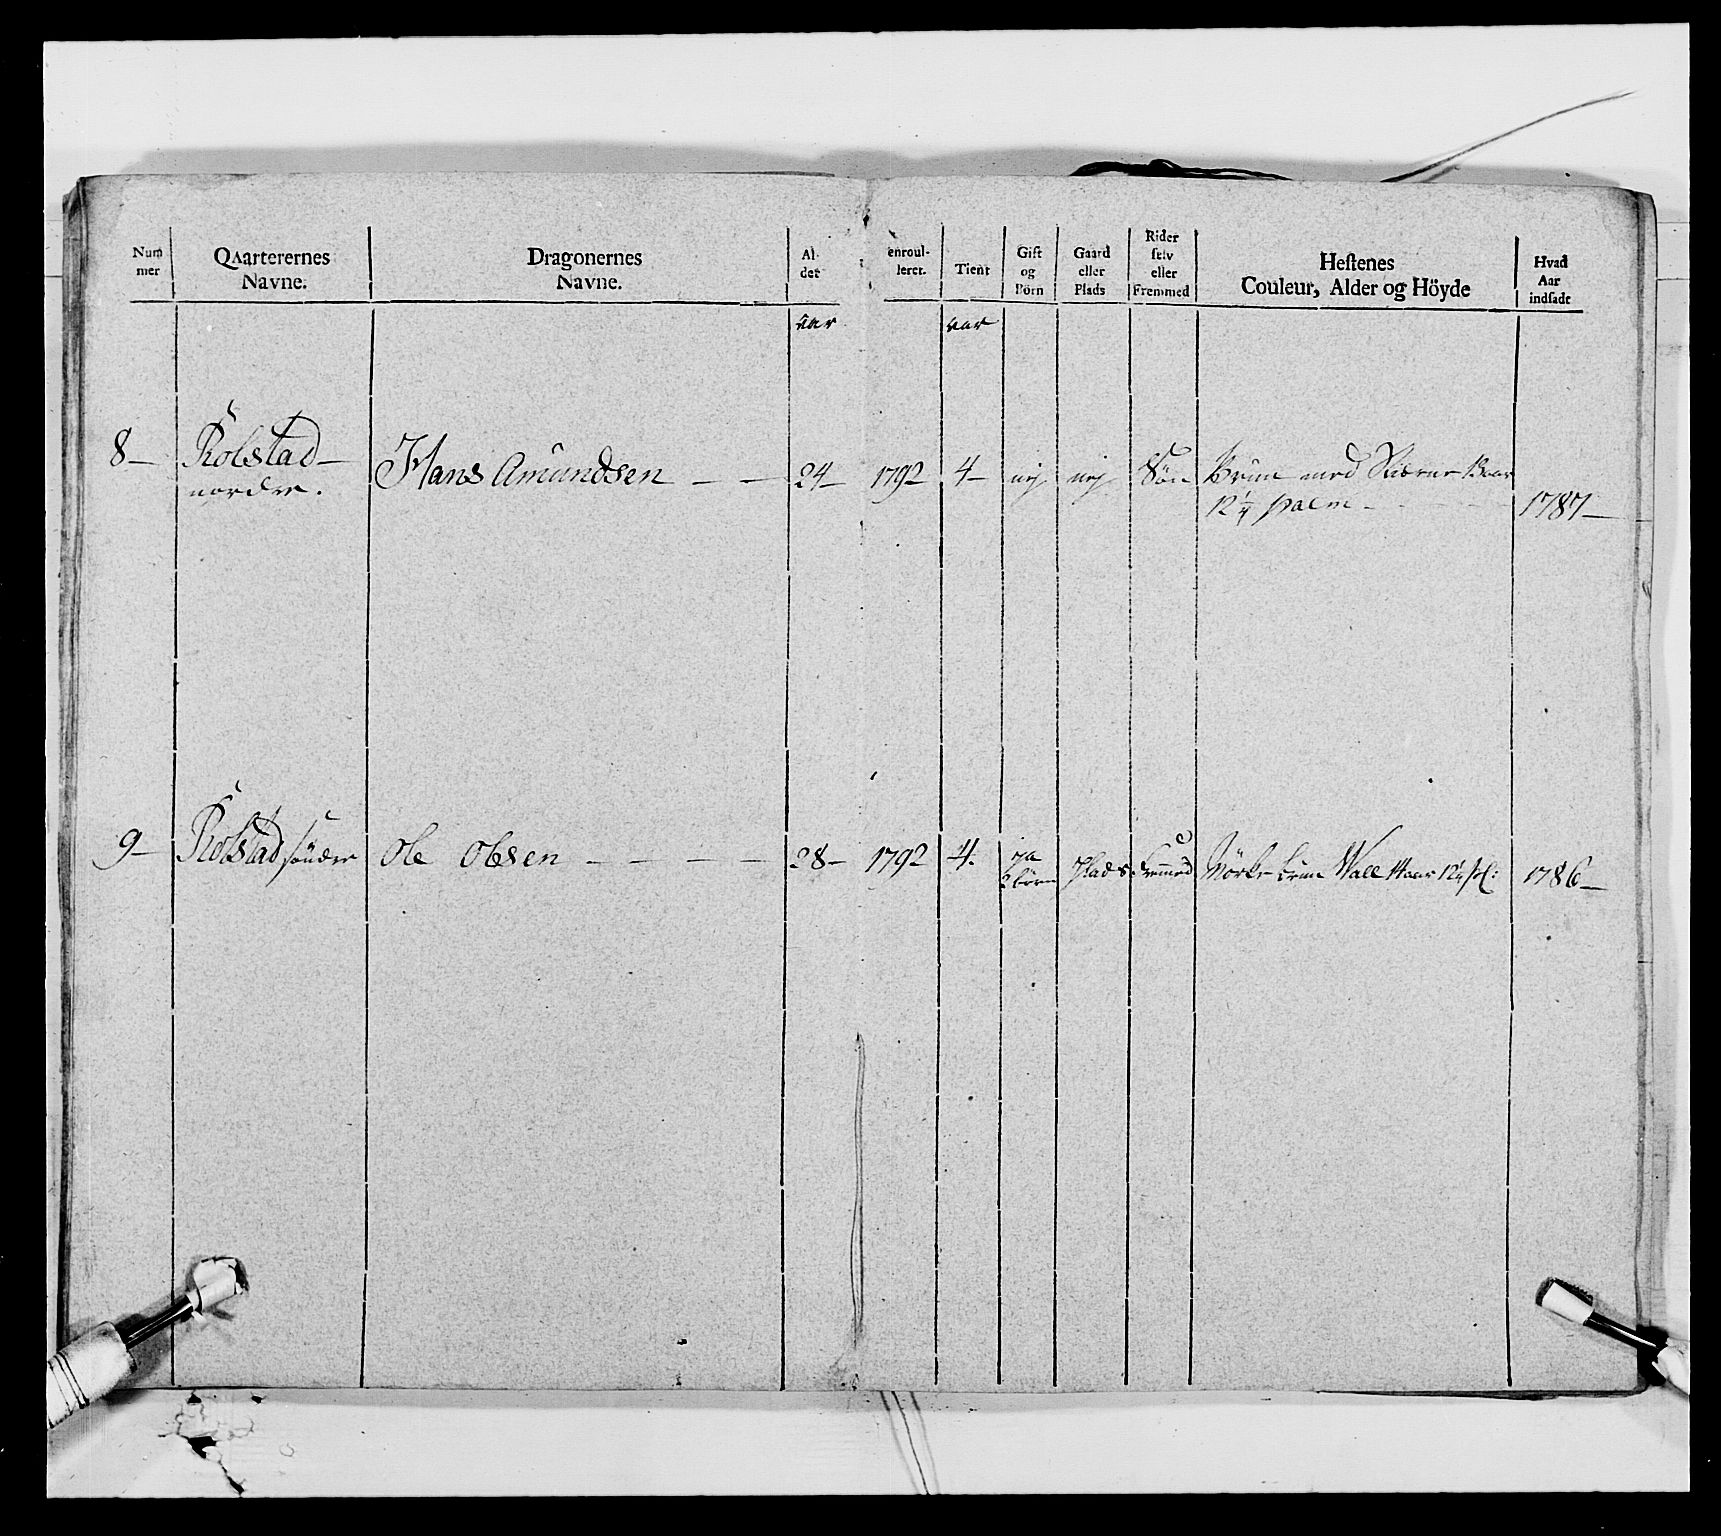 Num mer | Qvarterernes Navne. | Dragonernes Navne. | Al- der | enroul- leret. | Tient | Gift og Börn | Gaard eller Plads | Rider selv eller Fremmed | Hestenes Couleur, Alder og Höyde | Hvad Aar indsadt
aar | aar
8 – | Rolstad – | Hans Amundsen – – | 24 – | 1792 | 4 – | nej | nej | Sön | Brun med Stierne 13 aar
nordre. | 12 1/4 palm – | 1787 –
9 – | Rolstad söndre | Ole Olsen – – – – | 28 – | 1792 | 4. | ja | Plads | Fremed | Mörke brun Wall 14 aar 12 1/4 pl: | 1786 –
2 börn